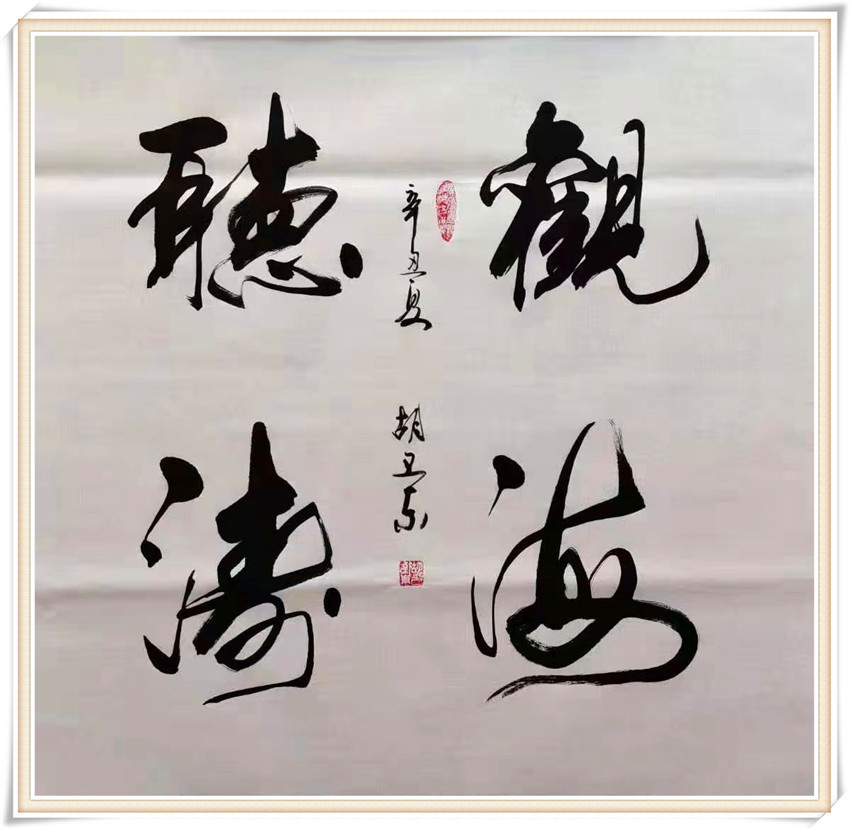 觀海
聽濤
辛丑夏 胡卫东